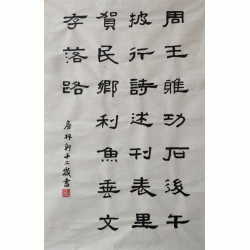 周王雅功石後午
披行詩述刊表里
賀民鄉利魚垂文
李落路
十二歲書